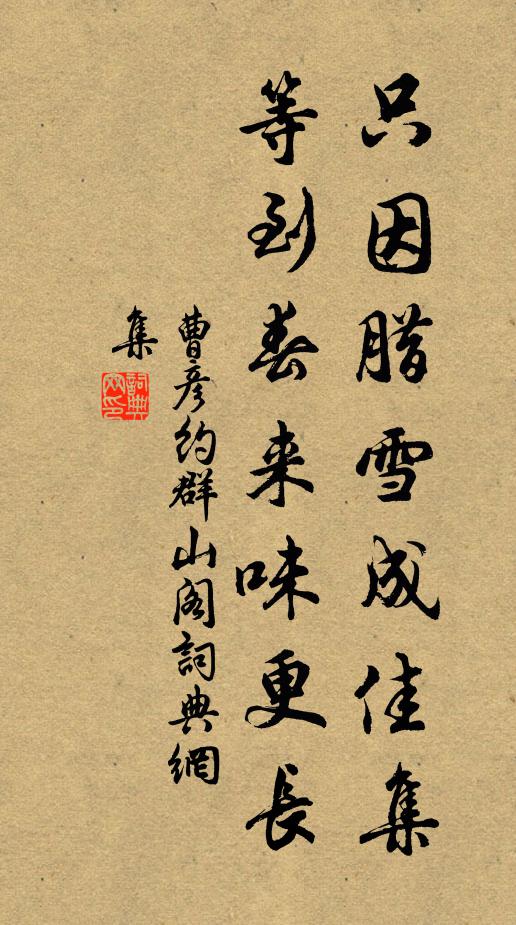 只因腊雪成佳集
等到春来味更長
曹彦約群山阁詞典網
集
詞典網印